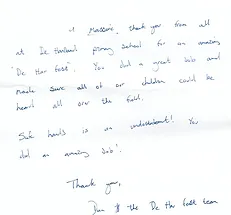 A massive, thank you from all
at De Havilland primary school for an amazing
"De Hav Fest". You did a great job and
made sure all of our children could be
heard all over the field.
Safe hands is an understatement! You
did an amazing job!
Thank you,
& the De Hav Fest team